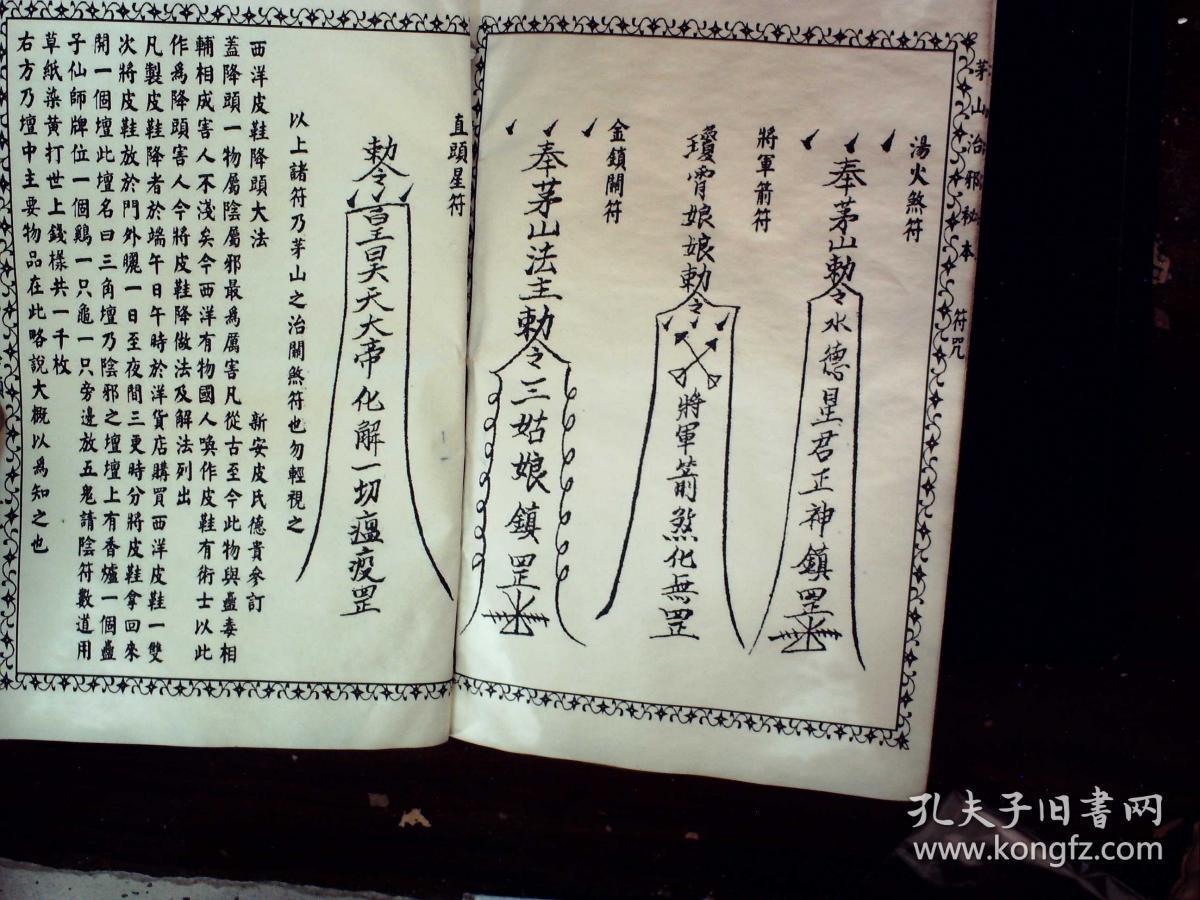 茅山治邪秘本
符咒
湯火煞符
奉茅山勅令水德星君正神鎮罡
將軍箭符
瓊霄娘娘勅令將軍箭煞化無罡
金鎖關符
奉茅山法主勅令三姑娘鎮罡
直頭星符
勅令皇昊天大帝化解一切瘟疫罡
以上諸符乃茅山之治關煞符也勿輕視之
西洋皮鞋降頭大法
新安皮氏德貴參訂
蓋降頭一物屬陰屬邪最爲厲害凡從古至今此物與蠱毒相
輔相成害人不淺矣今西洋有物國人喚作皮鞋有術士以此
作爲降頭害人今將皮鞋降做法及解法列出
凡製皮鞋降者於端午日午時於洋貨店購買西洋皮鞋一雙
次將皮鞋放於門外曬一日至夜間三更時分將皮鞋拿回來
開一個壇此壇名曰三角壇乃陰邪之壇壇上有香爐一個蠱
子仙師牌位一個鷄一只龜一只旁邊放五鬼請陰符數道用
草紙染黄打世上錢樣共一千枚
右方乃壇中主要物品在此略說大概以爲知之也
孔夫子旧書网
www.kongfz.com